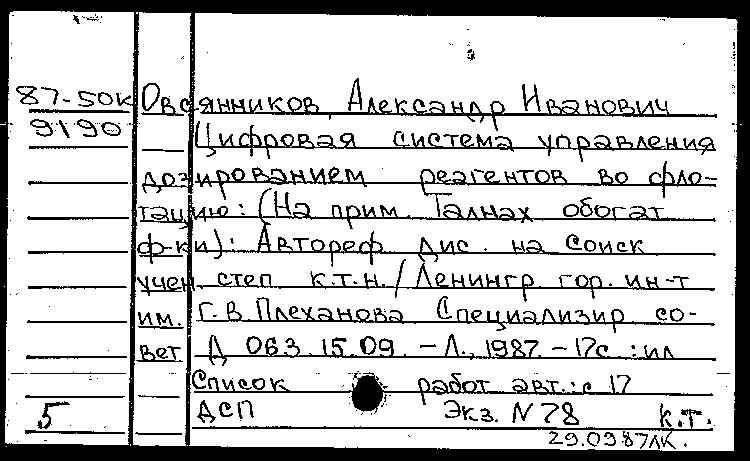 87-50к Овсянников, Александр Иванович
9190 Цифровая система управления
дозированием реагентов во фло-
тацию: (На прим. Талнах обогат
ф-ки): Автореф дис. на соиск
учен степ к.т.н. / Ленингр гор. ин-т
им. Г. В Плеханова Специализир со-
вет Д 063.15.09. - Л., 1987. - 17с : ил
Список работ авт.: с 17
5 ДСП Экз. N 78 к.т.
29.09 87ЛК.